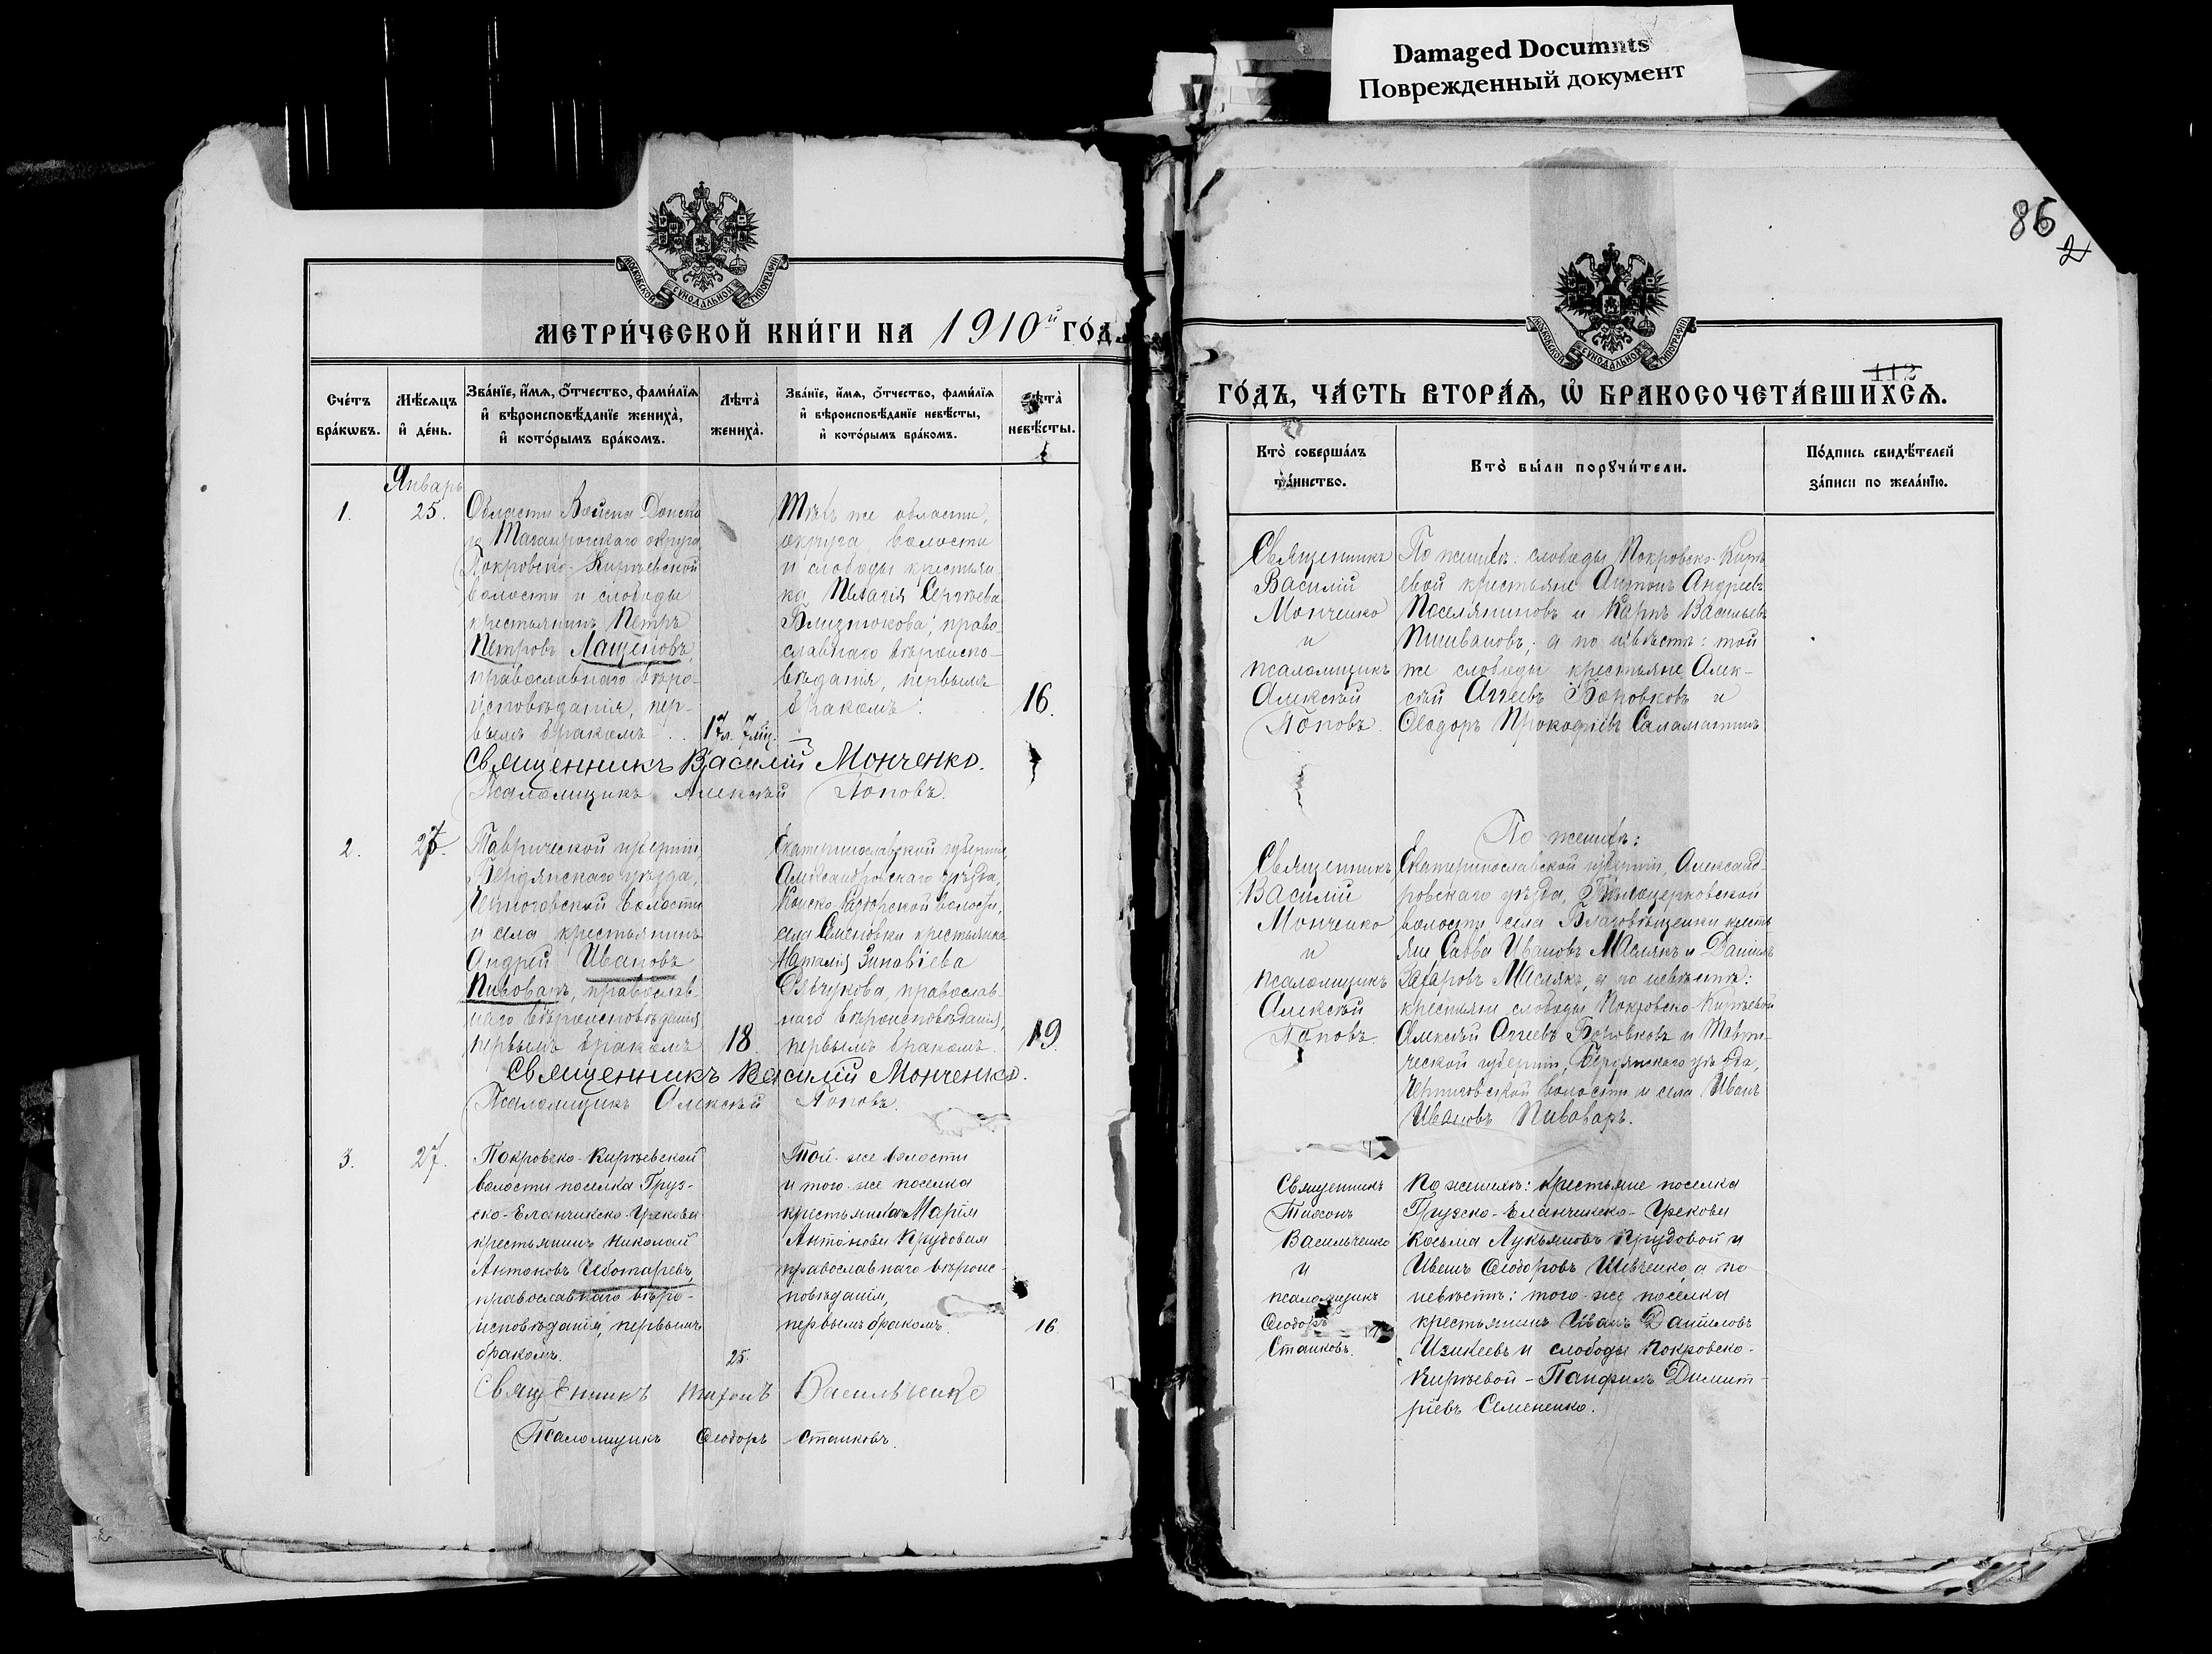 Damaged Documnts
Поврежденный документ
86
2
МОСКОВСКОЙ СУНОДАЛЬНОЙ ТИПОГРАФІИ
МЕТРИ́ЧЕСКОЙ КНИ́ГИ НА 1910й ГО́Д
Сче́тъ бра́кωвъ.
Мѣ́сяцъ и҆ де́нь.
Зва́нїе, и҆́мѧ, ѻ҆́тчество, фами́лїѧ и҆ вѣроисповѣ́данїе жениха̀, и҆ кото́рымъ бра́комъ.
Лѣта̀ жениха̀.
Зва́нїе, и҆́мѧ, ѻ҆́тчество, фами́лїѧ и҆ вѣроисповѣ́данїе невѣ́сты, и҆ кото́рымъ бра́комъ.
Лѣта̀ невѣ́сты.
Январь
1.
25.
Области Войска Донска
го Таганрогскаго округа
Покровско-Кирѣевской
волости и слободы
крестьянинъ Петръ
Петровъ Лащеновъ,
православнаго вѣро-
исповѣданія, пер-
вымъ бракомъ.
17л. 7мц.
Тѣхъ же области,
округа, волости
и слободы крестьян-
ка Пелагія Сергѣева
Близнюкова, право-
славнаго вѣроиспо-
вѣданія, первымъ
бракомъ.
16.
Священникъ Василій Монченко.
Псаломщикъ Алексѣй Поповъ.
2.
Таврической губерніи,
Бердянскаго уѣзда,
Черниговской волости
и села крестьянинъ
Андрей Ивановъ
Пивоваръ, православ-
наго вѣроисповѣданія
первымъ бракомъ
18.
Екатеринославской губерніи,
Александровскаго уѣзда,
Конско-Раздорской волости,
села Семеновки крестьянка
Наталія Зиновіева
православ-
наго вѣроисповѣданія,
первымъ бракомъ.
19.
Священникъ Василій Монченко.
Псаломщикъ Алексѣй Поповъ.
3.
27.
Покровско-Кирѣевской
волости поселка Груз-
ско-Еланчикско-Грекова
крестьянинъ Николай
Антоновъ Чеботаревъ,
православнаго вѣро-
исповѣданія, первымъ
бракомъ.
25.
Той-же волости
и того-же поселка
крестьянка Марія
Антонова Прудовая
православнаго вѣроис-
повѣданія,
первымъ бракомъ.
16
Священникъ Тихонъ Васильченко
Псаломщикъ Ѳеодоръ Станковъ.
112
МОСКОВСКОЙ СУНОДАЛЬНОЙ ТИПОГРАФІИ
ГО́ДЪ, ЧА́СТЬ ВТОРА́Ѧ, Ѽ БРАКОСОЧЕТА́ВШИХСѦ.
Кто̀ соверша́лъ та́инство.
Кто̀ бы́ли порꙋчи́тели.
По́дпись свидѣ́телей за́писи по жела́нїю.
Священникъ
Василій
Монченко
и
псаломщикъ
Алексѣй
Поповъ.
По женихѣ: слободы Покровско-Кирѣ-
евой крестьяне Антонъ Андреевъ
Поселяниновъ и Карпъ Васильевъ
Пишвановъ; а по невѣстѣ: той
же слободы крестьяне Алек-
сѣй Аггеевъ Боровковъ и
Ѳеодоръ Прокофіевъ Саламатинъ
Священникъ
Василій
Монченко
и
псаломщикъ
Алексѣй
Поповъ.
По женихѣ:
Екатеринославской губерніи, Александ-
ровскаго уѣзда, Бѣлоцерковской
волости, села Благовѣщенки кресть-
яне Савва Ивановъ Маслякъ и Даніилъ
Захаровъ Маслякъ, а по невѣстѣ:
крестьяне слободы Покровско-Кирѣевой
Алексѣй Аггеевъ Боровковъ и Таври-
ческой губерніи, Бердянскаго уѣзда,
Черниговской волости и села Иванъ
Ивановъ Пивоваръ.
Священникъ
Тихонъ
Васильченко
и
псаломщикъ
Ѳеодоръ
Станковъ.
По женихѣ: крестьяне поселка
Грузско-Еланчикско-Грекова
Косьма Лукьяновъ Прудовой и
Иванъ Ѳеодоровъ Шевченко, а по
невѣстѣ: того-же поселка
крестьянинъ Иванъ Даніиловъ
и слободы Покровско-
Кирѣевой - Панфилъ Димит-
ріевъ Семененко.